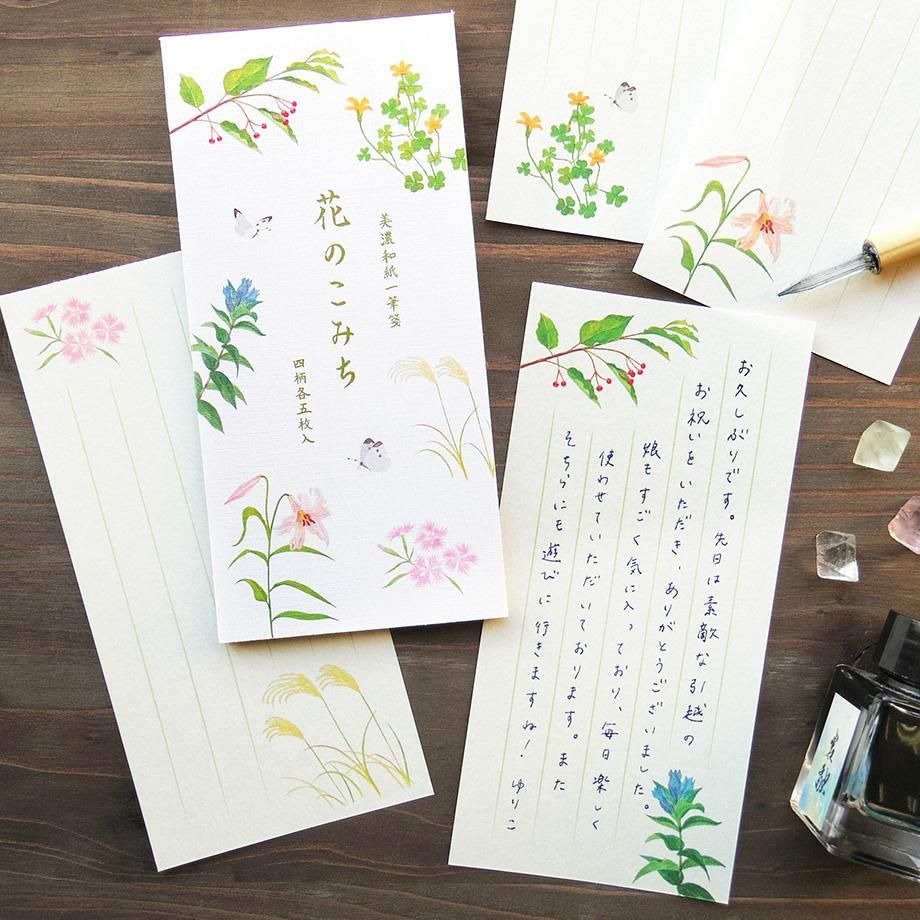 美濃和紙一筆箋
花のこみち
四柄各五枚入
お久しぶりです。先日は素敵な引越の
お祝いをいただき、ありがとうございました。
娘もすごく気に入っており、毎日楽しく
使わせていただいております。また
そちらにも遊びに行きますね！ ゆりこ